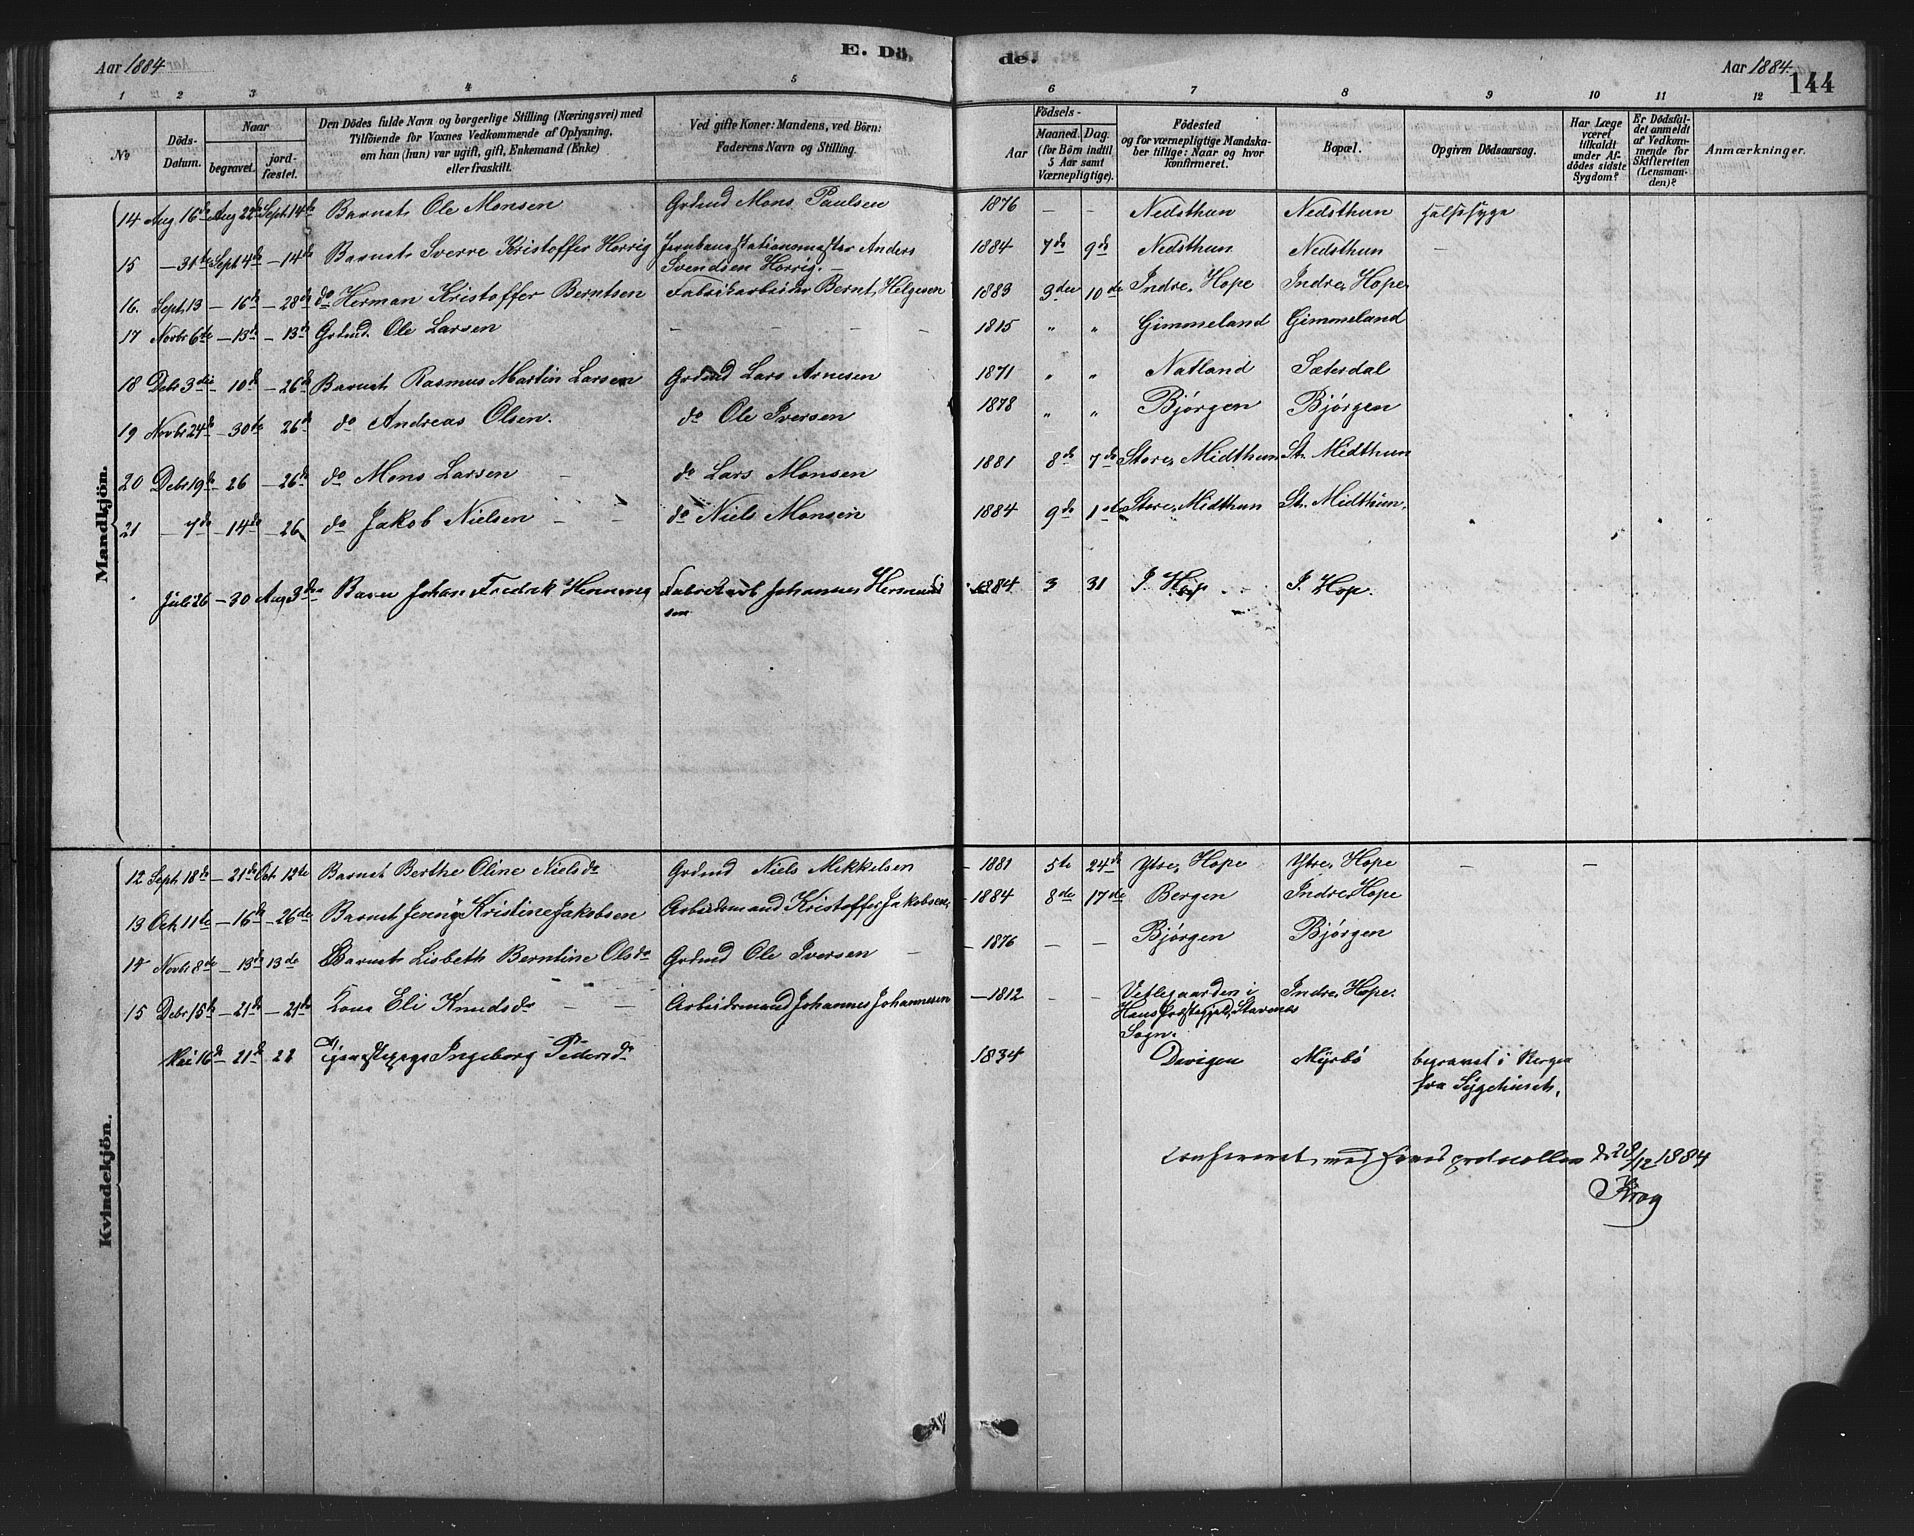 Aar 1884
E. Dö-
de.
Aar 1884.
144
1 2 3 4 5 6 7 8 9 10 11 12
No
Döds-Datum.
Naar
begravet.
jord-fæstet.
Den Dödes fulde Navn og borgerlige Stilling (Næringsvei) med
Tilföiende for Voxnes Vedkommende af Oplysning,
om han (hun) var ugift, gift, Enkemand (Enke)
eller fraskilt.
Ved gifte Koner: Mandens, ved Börn:
Faderens Navn og Stilling.
Födsels-
Aar
Maaned. Dag.
(for Börn indtil
5 Aar samt
Værnepligtige).
Födested
og for værnepligtige Mandska-
ber tillige: Naar og hvor
konfirmeret.
Bopæl.
Opgiven Dödsaarsag.
Har Læge
været
tilkaldt
under Af-
dödes sidste
Sygdom?
Er Dödsfal-
det anmeldt
af Vedkom-
mende for
Skifteretten
(Lensman-
den)?
Anmærkninger.
Mandkjön.
14 Aug 16de Aug 22de Sept 14de Barnet Ole Monsen Grdmd Mons Paulsen 1876 — — Nedsthun Nedsthun Halssyge
15 — 31te Sept 4de — 14de Barnet Sverre Kristoffer Horrig Jernbanestationsmester Anders 1884 7de 9de Nedsthun Nedsthun —
Svendsen Horrig. —
16. Sept. 13 — 16de — 28de do Herman Kristoffer Berntsen Fabrikarbeider Bernt Helgesen 1883 3die 10de Indre Hope Indre Hope
17 Novbr 6te — 13de — 13de Grdmd. Ole Larsen — — — — 1815 " " Gimmeland Gimmeland
18 Debr 3die — 10de — 26de Barnet Rasmus Martin Larsen Grdmd Lars Arnesen 1871 " " Natland Sæterdal
19 Novbr 24de — 30te 26de do Andreas Olsen. do Ole Iversen 1878 " " Bjørgen Bjørgen
20 Debr 19de — 26 — 26de do Mons Larsen — do Lars Monsen 1881 8de 7de Store Midthun St. Midthun
21 — 7de — 14de — 26 do Jakob Nielsen — — do Niels Monsen 1884 9de 1ste Store Midthun St. Midthun.
Juli 26 — 30 Aug 3die Barn Johan Fredrik Henning Fabrikarb Johannes Hermund 1884 3 31 I. Hop I. Hop.
sen
Kvindekjön.
12 Sept 18de — 21de Oct 12te Barnet Berthe Oline Nielsdr Grdmd Niels Mikkelsen — 1881 5te 24de Ytre Hope Ytre Hope — —
13 Oct 11te — 16de — 26de Barnet Jenny Kristine Jakobsen Arbeidsmand Kristoffer Jakobsen — 1884 8de 17de Bergen Indre Hope
14 Novbr 8de — 13de 13de Barnet Lisbeth Berntine Olsdr Grdmd Ole Iversen — — 1876 — — Bjørgen Bjørgen
15 Debr 15de — 21de — 21de Kone Eli Knudsdr — — Arbeidsmand Johannes Johannesen — 1812 — — Vetlegaarden i Indre Hope.
Hafslo Præstegjeld, Stavenes
Sogn.
Mai 16de — 21de — 22 Tjenestepige Ingeborg Pedersdr 1834 Davigen Myrbø begravet i Bergen
fra Sygehuset.
Confereret med Hovedprotocollen d. 28/12 1884
Krog